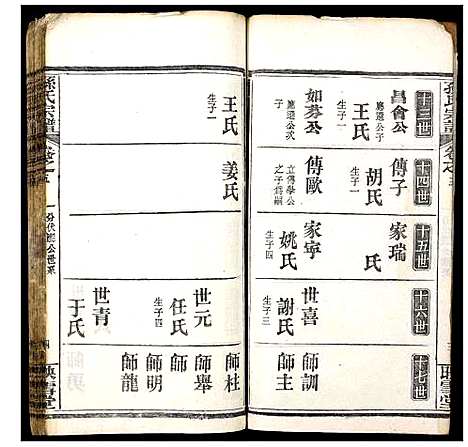 孫氏宗譜
卷之五
映雪堂
十三世
昌會公
應選公長子
王氏
生子一
如芬公
應還公次子
王氏
生子一
十四世
傳子
胡氏
生子一
傳歐
立傳學公之子爲嗣
姜氏
生子一
十五世
家瑞
氏
家寧
姚氏
生子四
十六世
世喜
謝氏
生子三
世元
任氏
生子四
世青
于氏
十七世
師訓
師主
師柱
師舉
師明
師龍
孫氏宗譜
卷之五
份伏熊公世系
映雪堂